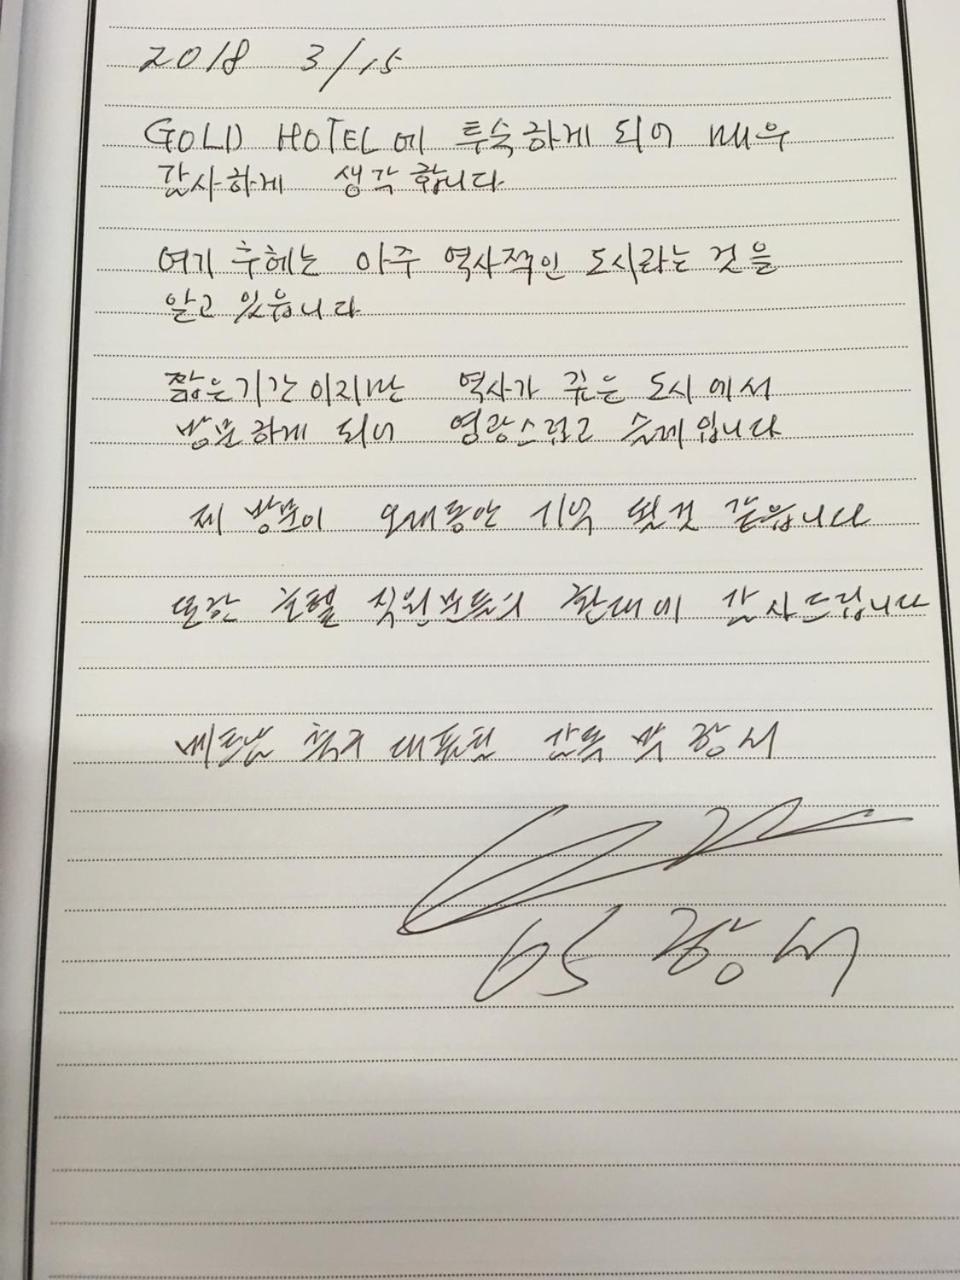 2018 3/15
GOLD HOTEL에 투숙하게 되어 매우
감사하게 생각합니다
여기 후헤는 아주 역사적인 도시라는 것을
알고 있읍니다
짧은기간이지만 역사가 깊은 도시에서
방문하게 되어 영광스럽고
제 방문이 오래동안 기억 될것 같읍니다
또한 호텔 직원분들의 환대에 감사드립니다
베트남 축구 대표팀 감독 박 항 서
박 항 서